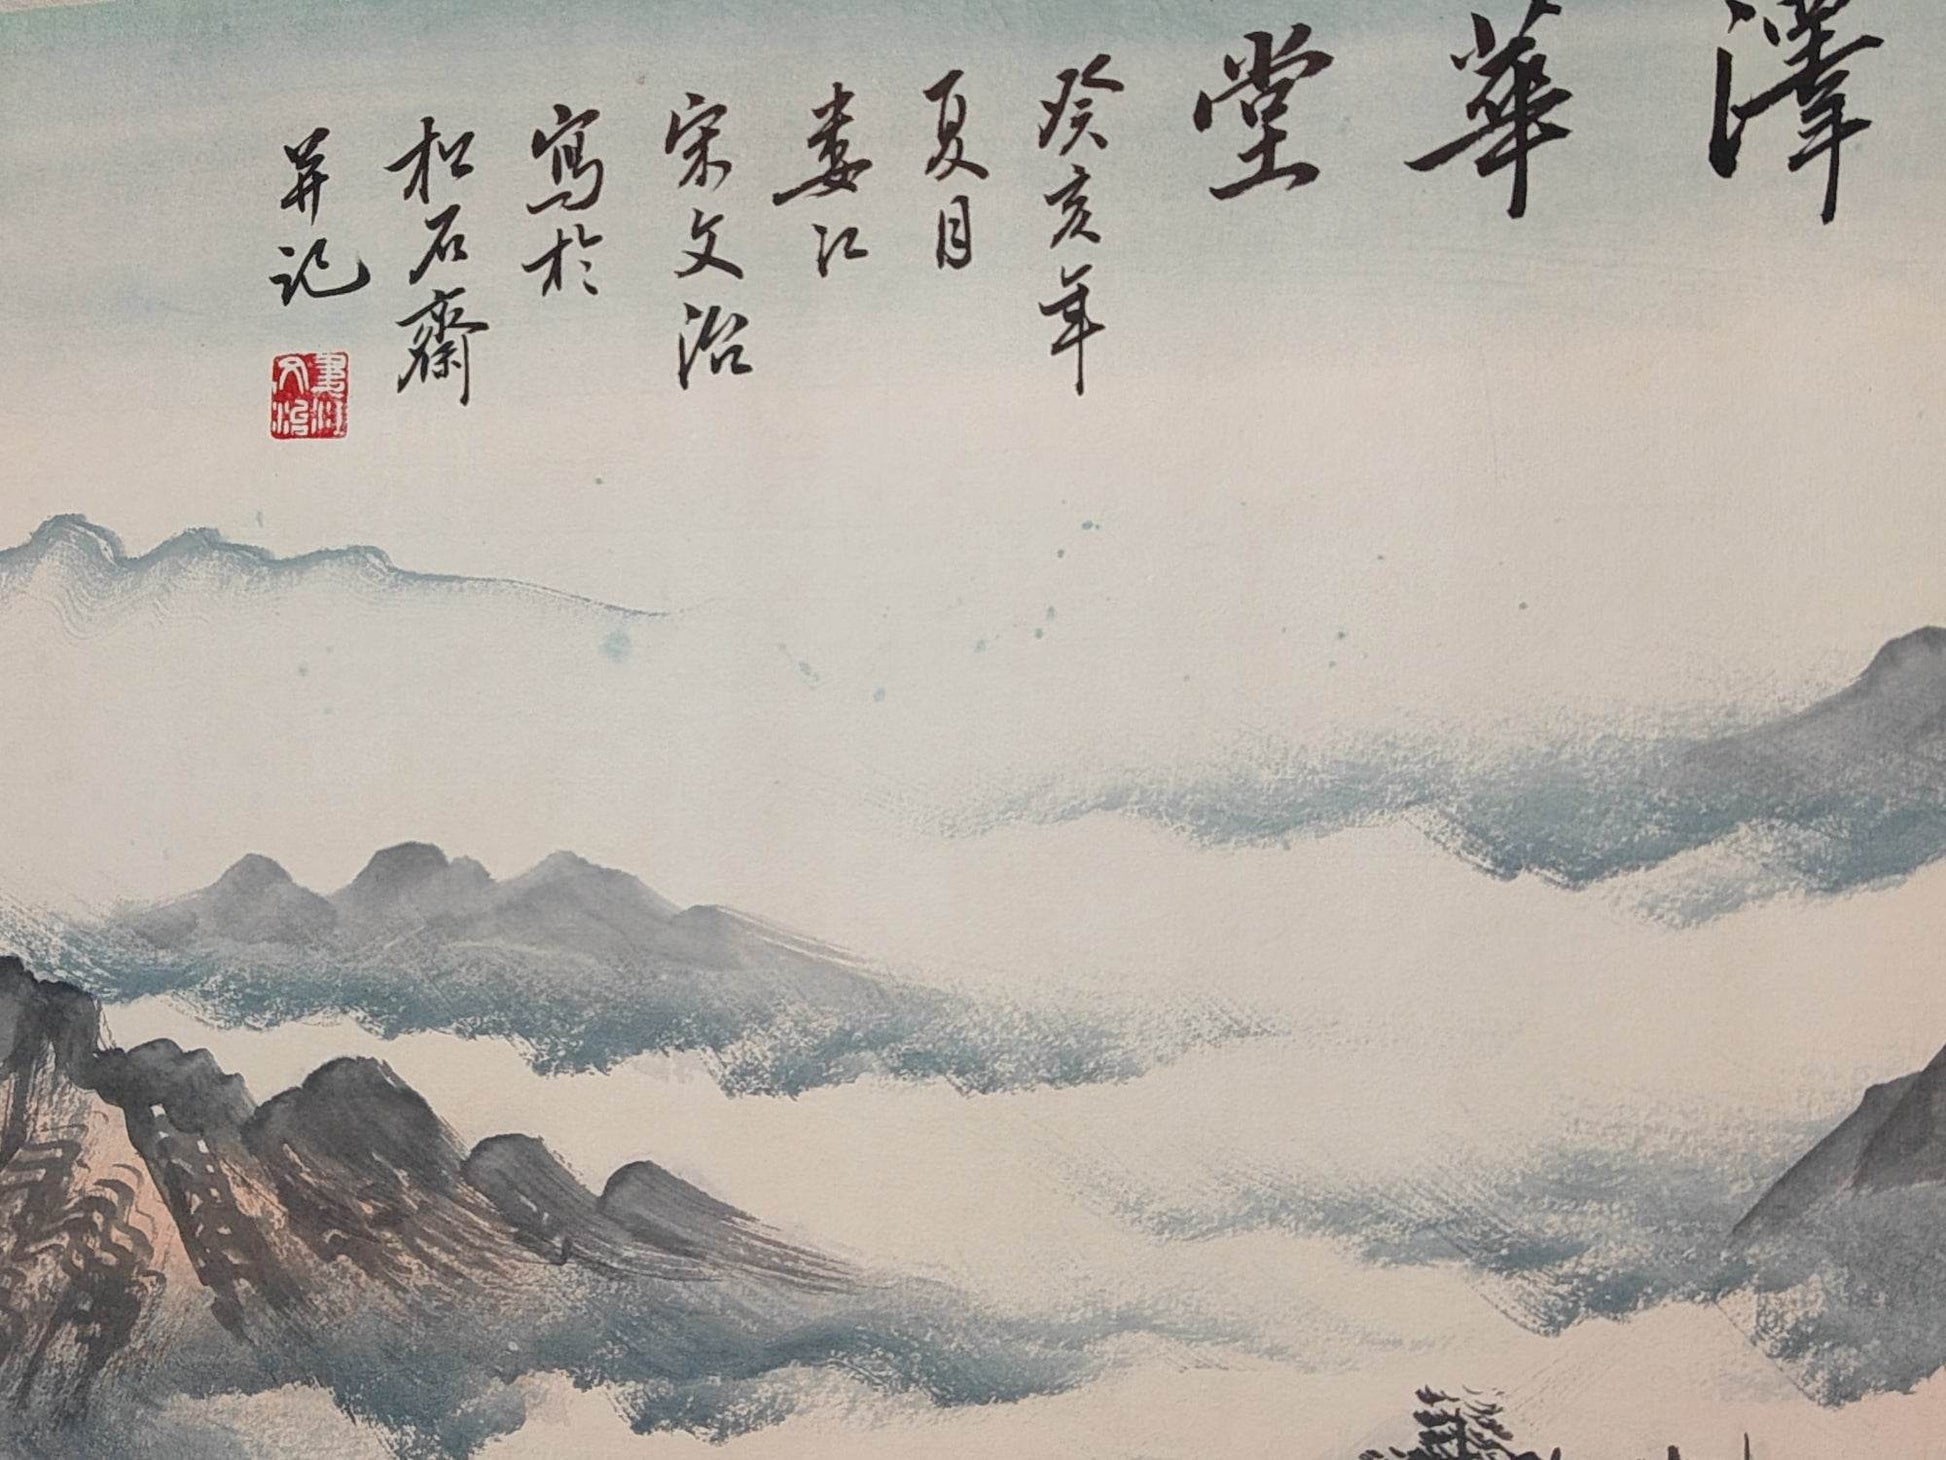 澤華堂
癸亥年
夏月
婁江
宋文治
寫於
松石齋
并記
婁江
文治